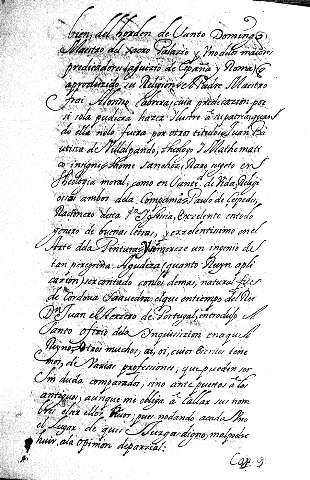 bien, del horden de Santo Domingo,
Maestro del sacro Palacio, y
predicadores de España, y Roma,
a producido su Religion el Padre Maestro
frai Alonso Cabrera, cuia predicacion por
si sola pudiera hazer ilustre a su patria, quan
do ella no lo fuera por otros titulos. Juan Ba
utista de Villalpando, theologo, i Mathemati
co insigne, Thome Sanchez, Raro sujeto en
theologia moral, como en Santd. de vida, Religi
osos ambos dla Compania. Paulo de Cespedes,
Racionero desta Sta. Iglesia, Excelente en todo
genero de buenas letras, y excelentissimo en el
Arte dla Pintura, un ingenio de
tan peregrina Agudeza (quanto Ruyn apli
cacion) ser contado con los demas, natural
de Cordova Saavedra, el que en tiempo del Rei
Don Juan el tercero de Portugal, introdujo el
Santo oficio dla Inquisicion en aquel
Reyno, otros muchos, ai, oi, cuios tiene
mos, de varias profecciones, que pueden ser
sin duda comparados, sino antepuestos a los
antiguos, aunque me obliga a callar sus nom
bres el ser ellos que no dando a cada uno
el lugar de que se Juzga digno, mal podre
huir, ala opinion de parcial:
Cap. 9.